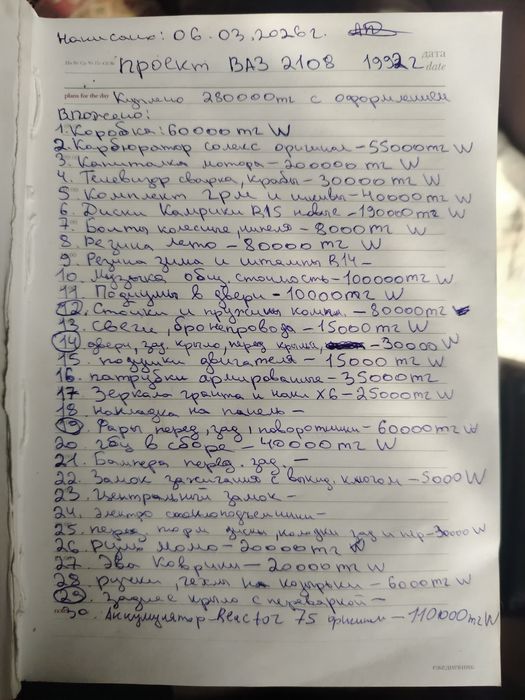 Написано: 06.03.2026г.
дата
date
Проект ВАЗ 2108 1992г
plans for the day
Куплено 280000тг с оформлением
Вложено:
1. Коробка: 60000тг W
2. Карбюратор солекс оригинал - 55000тг W
3. Капиталка мотора - 200000тг W
4. Телевизор сварка, крабы - 30000тг W
5. Комплект грм и шкивы - 40000тг W
6. Диски Камрики R15 новые - 190000тг W
7. Болты колесные, - 8000тг W
8. Резина лето - 80000тг W
9. Резина зима и штампы R14 -
10. Музыка общ. стоимость - 100000тг W
11. Подиумы в двери - 10000тг W
12. Стойки и пружины компл. - 80000тг
13. Свечи, бронепровода - 15000тг W
14. двери, зад. крыло, перед крылья, - 30000 W
15. подушки двигателя - 15000тг W
16. патрубки армированные - 35000тг
17. Зеркала гранта и 25000тг W
18. накладка на панель -
19. Фары перед, зад, поворотники - 60000тг W
20. гбц в сборе - 40000тг W
21. Бампера перед. зад. -
22. Замок зажигания с выкид. ключом - 5000 W
23. Центральный замок -
24. электро стеклоподъемники -
25. торм диски, колодки зад и пер - 30000 W
26. Руль момо - 20000тг W
27. Эва Коврики - 20000тг W
28. ручки, чехлы на козырьки - 6000тг W
29. Заднее крыло с переваркой -
30. Аккумулятор Reactor 75 - 110000тг W
ежедневник